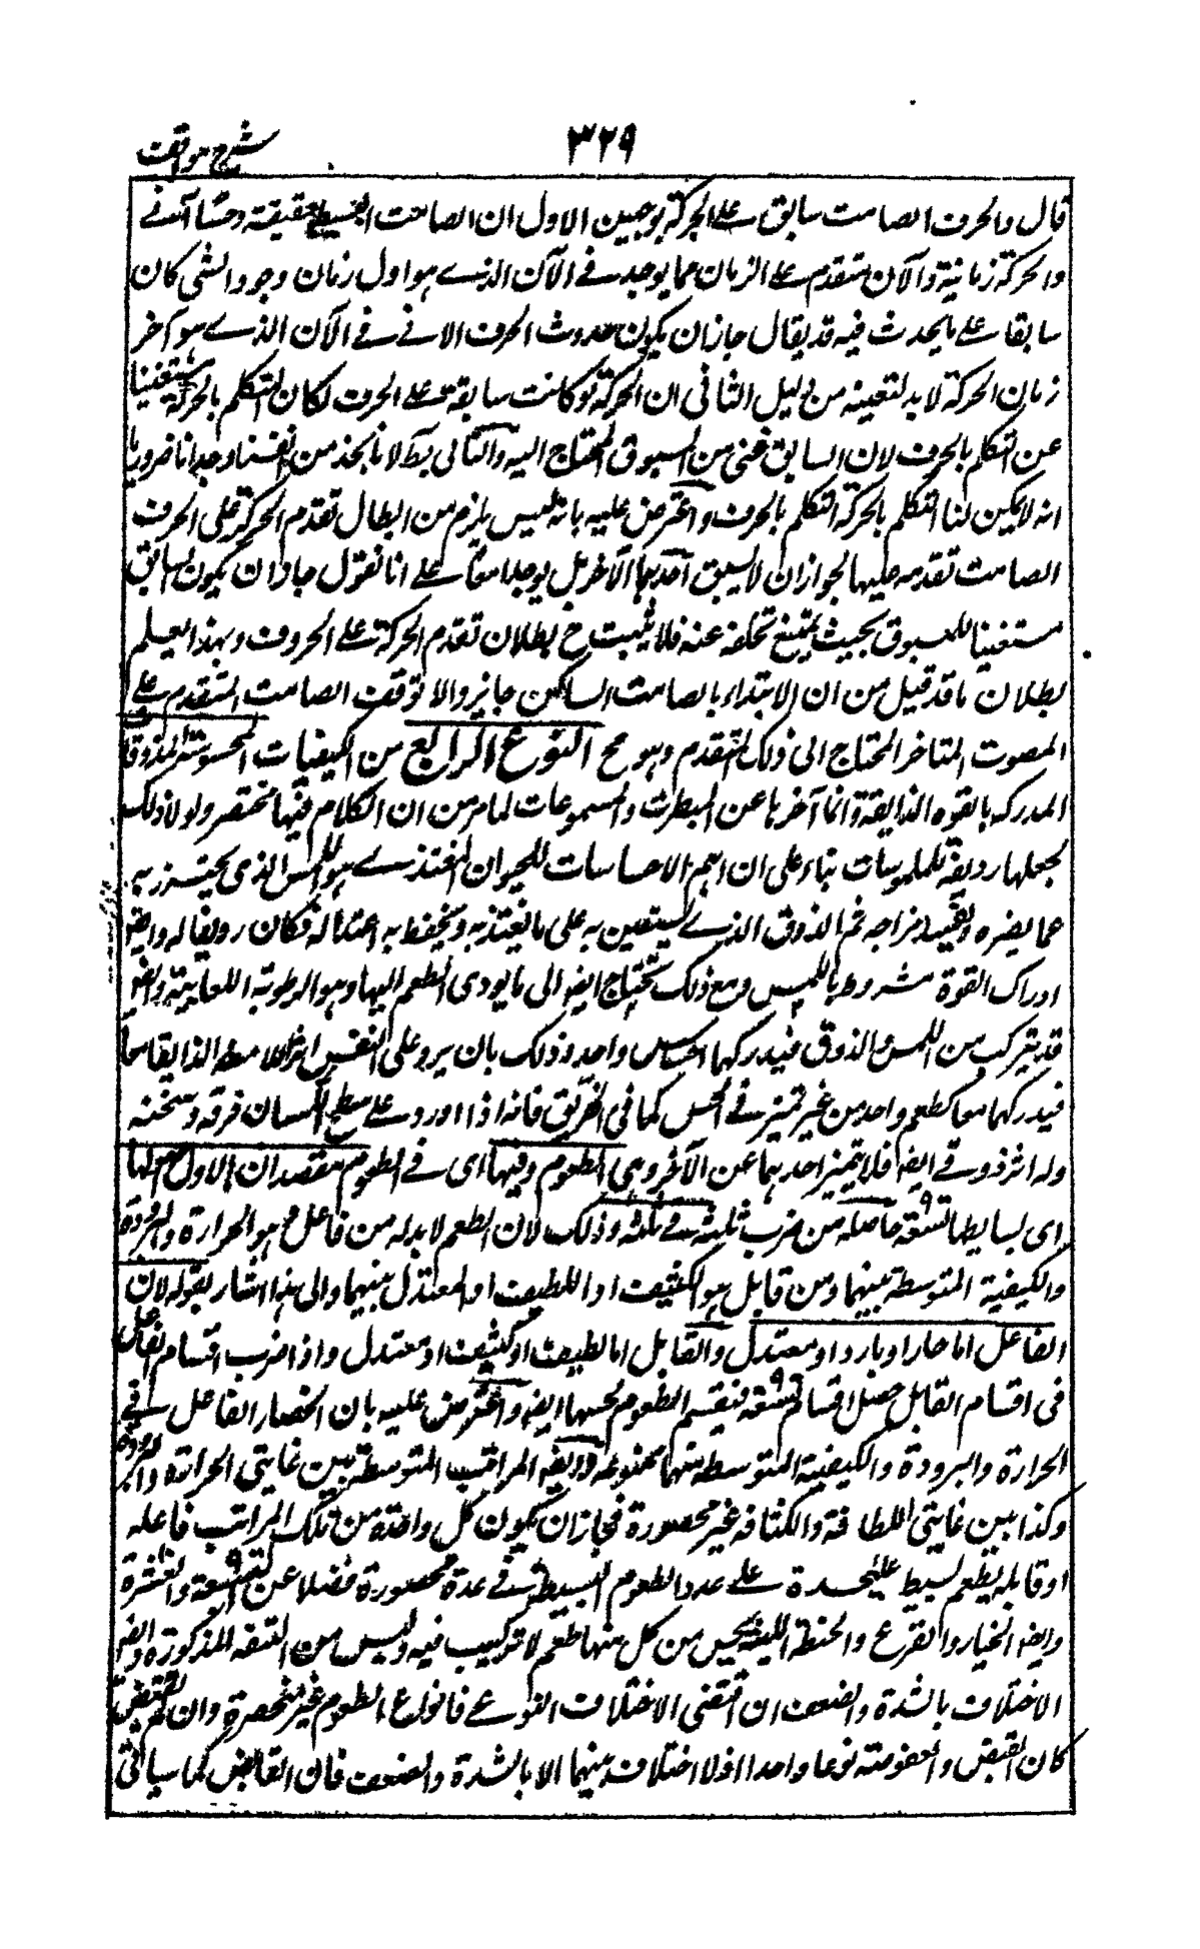 ٣٢٩
شرح مواقف
قال والحرف الصامت سابق على الحركة بوجهين الاول ان الصامت البسيط حقيقة وحسا آنى
والحركة زمانية والآن متقدم على الزمان فما يوجد فى الآن الذى هو اول زمان وجود الشى كان
سابقا على ما يحدث فيه قد يقال جاز ان يكون حدوث الحرف الآنى فى الآن الذى هو آخر
زمان الحركة لا بد لنفيه من دليل الثانى ان الحركة لو كانت سابقة على الحرف لكان المتكلم بالحركة مستغنيا
عن التكلم بالحرف لان السابق غنى من المسبوق المحتاج اليه والتالى بط لانا نجد من انفسنا وجدانا ضروريا
انه لا يمكن لنا التكلم بالحركة الا التكلم بالحرف واعترض عليه بانه ليس يلزم من ابطال تقدم الحركة على الحرف
الصامت تقدمه عليها لجواز ان لا يسبق احدهما الآخر بل يوجدا معا على انا نقول جاز ان يكون السابق
مستغنيا للمسبوق بحيث يمتنع تخلفه عنه فلا يثبت ح بطلان تقدم الحركة على الحروف وبهذا يعلم
بطلان ما قد قيل من ان الابتداء بالصامت الساكن جايز والا توقف الصامت المتقدم على
المصوت المتاخر المحتاج الى ذلك المتقدم وهو مح النوع الرابع من الكيفيات المحسوسة المذوقات
المدركة بالقوة الذايقة وانما آخرها عن المبصرات والمسموعات لما مر من ان الكلام فيها مختصر ولولا ذلك
لجعلها رديفة للملموسات بناء على ان اهم الاحساسات للحيوان المغتذى هو اللمس الذى يحترز به
عما يضره ويفسد مزاجه ثم الذوق الذى يستعين به على ما يغتذ به ويحفظ به اعتداله فكان رديفا له وايض
ادراك القوة مشروط باللمس ومع ذلك تحتاج ايض الى ما يودى الطعم اليها وهو الرطوبة اللعابية وايض
قد يتركب من اللمس والذوق فيدركهما احساس واحد وذلك بان يرد على النفس اثر اللامسة والذايقة معا
فيدركهما معا كطعم واحد من غير تميز فى الحس كما فى الحريق فانه اذا اورد على سطح اللسان فرقه وسخنه
وله اثر ذوقى ايض فلا يتميز احدهما عن الآخر وهى الطعوم وفيها اى فى الطعوم مقصدان الاول اصولها
اى بسايطها تسعة حاصلة من ضرب ثلثة فى ثلثة وذلك لان الطعم لا بد له من فاعل هو الحرارة والبرودة
والكيفية المتوسطة بينهما ومن قابل هو الكثيف او اللطيف او المعتدل بينهما والى هذا اشار بقوله لان
الفاعل اما حار او بارد او معتدل والقابل اما لطيف او كثيف او معتدل واذا ضرب اقسام الفاعل
فى اقسام القابل حصل اقسام تسعة فينقسم الطعوم بحسبها ايض واعترض عليه بان انحصار الفاعل فى
الحرارة والبرودة والكيفية المتوسطة بينهما ممنوعة وايض المراتب المتوسطة بين غايتى الحرارة والبرودة
وكذا بين غايتى اللطافة والكثافة غير محصورة فجاز ان يكون كل واحدة من تلك المراتب فاعلة
او قابلة بطعم بسيط عليحدة على عدد الطعوم البسيطة فى عدة محصورة فضلا عن التسعة والعشرة
وايض الخيار والقرع والحنطة النيئة يحس من كل منها طعم لا تركيب فيه وليس من التسعة المذكورة وايض
الاختلاف بالشدة والضعف ان اقتضى الاختلاف النوعى فانواع الطعوم غير منحصرة وان لم يقتض
كان القبض والعفوصة نوعا واحدا اذ لا اختلاف بينهما الا بالشدة والضعف فان القابض كما سياتى